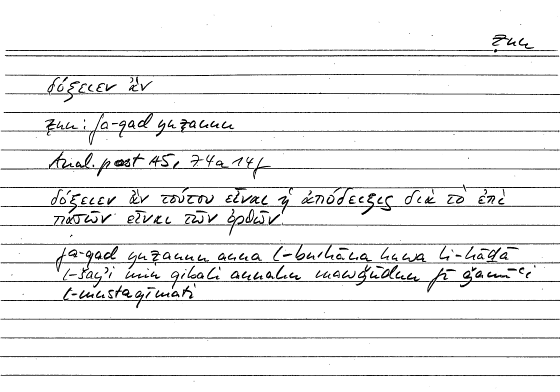 ẓnn
δόξειεν ἂν
ẓnn: fa-qad yuẓannu
Anal. post A5, 74a 14f
δόξειεν ἂν τούτου εἶναι ἡ ἀπόδειξις διὰ τὸ ἐπὶ
πασῶν εἶναι τῶν ὀρθῶν
fa-qad yuẓannu anna l-burhāna huwa li-hāḏā
l-šayʾi min qibali annahu mawǧūdun fī ǧamīʿi
l-mustaqīmati